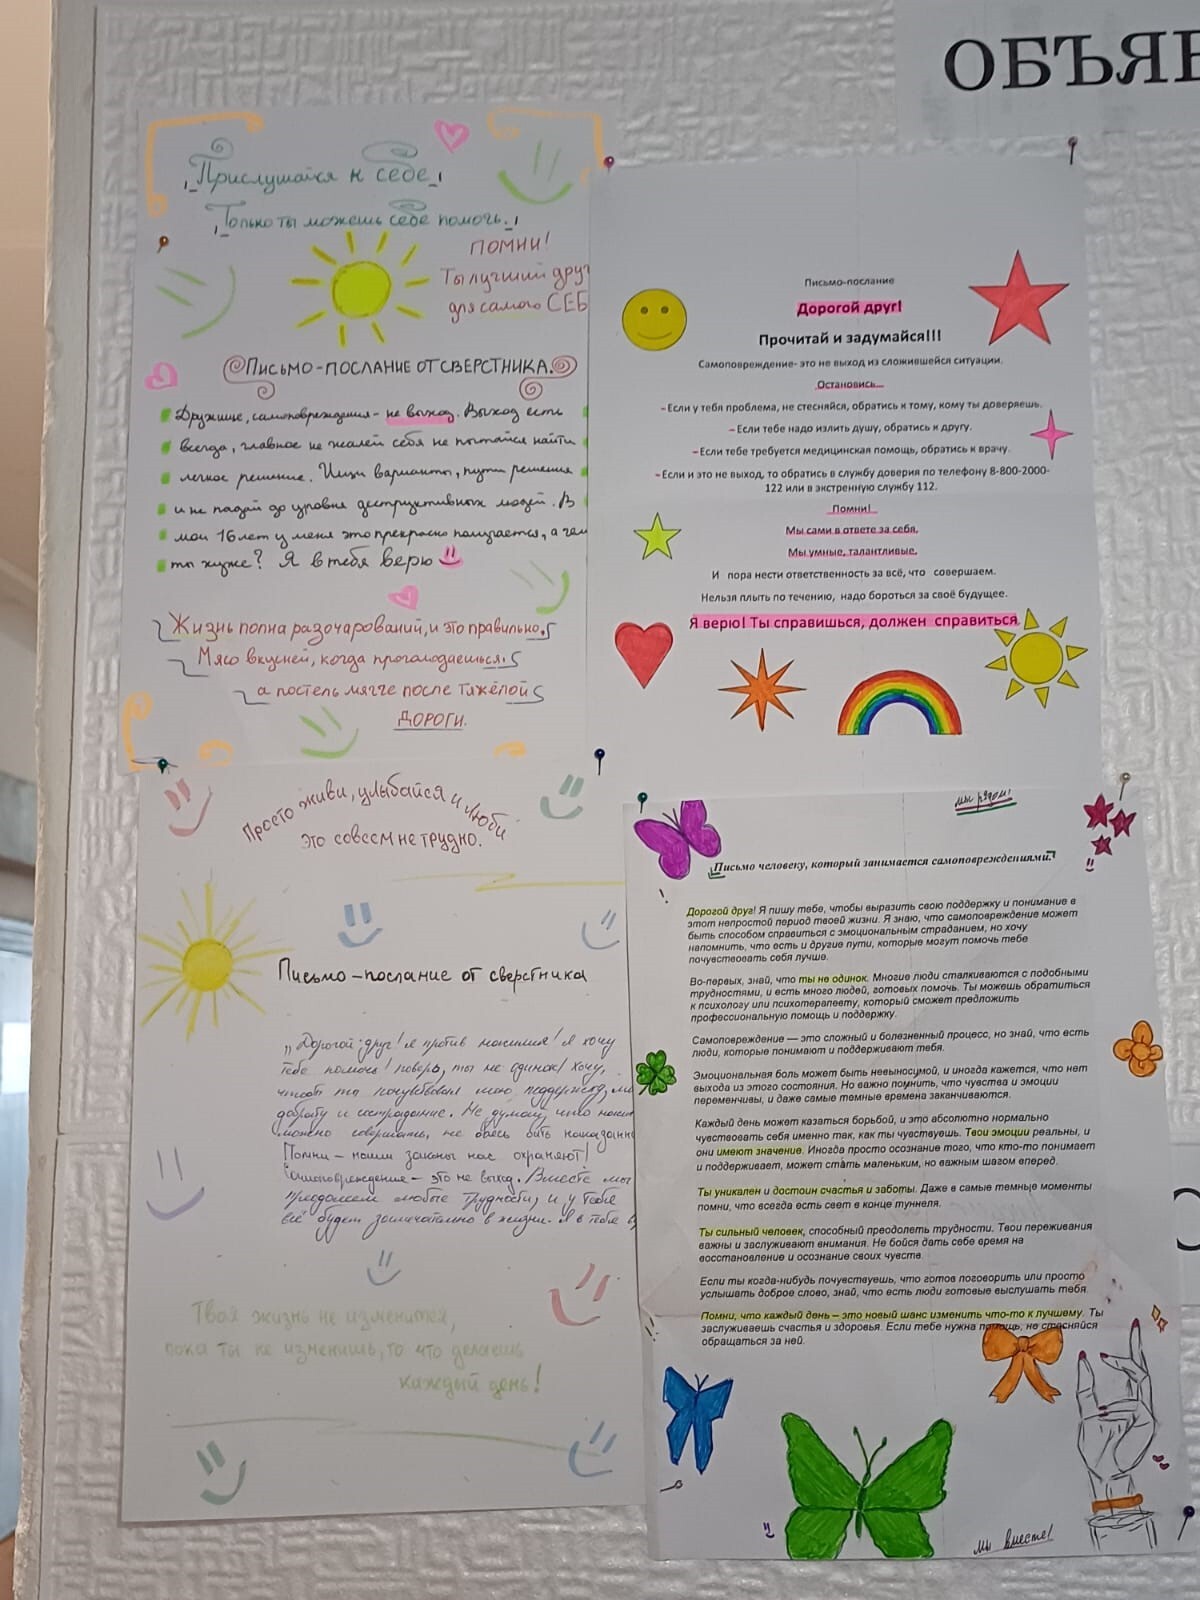 ОБЪЯВ
Прислушайся к себе,
Только ты можешь себе помочь.
ПОМНИ!
Ты лучший друг
для самого СЕБ
ПИСЬМО-ПОСЛАНИЕ ОТ СВЕРСТНИКА.
Дружище, самоповреждения - не выход. Выход есть
всегда, главное не жалей себя не пытайся найти
легкое решение. Ищи варианты, пути решения
и не падай до уровня деструктивных людей. В
мои 16 лет у меня это прекрасно получается, а чем
ты хуже? Я в тебя верю
Жизнь полна разочарований, и это правильно.
Мясо вкусней, когда проголодаешься.
а постель мягче после тяжёлой
ДОРОГИ.
Письмо-послание
Дорогой друг!
Прочитай и задумайся!!!
Самоповреждение- это не выход из сложившейся ситуации.
Остановись...
–Если у тебя проблема, не стесняйся, обратись к тому, кому ты доверяешь.
–Если тебе надо излить душу, обратись к другу.
–Если тебе требуется медицинская помощь, обратись к врачу.
–Если и это не выход, то обратись в службу доверия по телефону 8-800-2000-
122 или в экстренную службу 112.
Помни!
Мы сами в ответе за себя.
Мы умные, талантливые.
И пора нести ответственность за всё, что совершаем.
Нельзя плыть по течению, надо бороться за своё будущее.
Я верю! Ты справишься, должен справиться.
Просто живи, улыбайся и люби
это совсем не трудно.
Письмо-послание от сверстника
„Дорогой друг! я против насилия! я хочу
тебе помочь! поверь, ты не одинок! хочу,
чтобы ты почувствовал мою поддержку,
доброту и сострадание. Не думай, что
можно совершать, не боясь быть наказанн
Помни - наши законы нас охраняют!
Самоповреждение - это не выход. Вместе мы
преодолеем любые трудности, и у тебя
всё будет замечательно в жизни. Я в тебя в
Твоя жизнь не изменится,
пока ты не изменишь, то что делаешь
каждый день!
мы рядом!
Письмо человеку, который занимается самоповреждениями.
Дорогой друг! Я пишу тебе, чтобы выразить свою поддержку и понимание в
этот непростой период твоей жизни. Я знаю, что самоповреждение может
быть способом справиться с эмоциональным страданием, но хочу
напомнить, что есть и другие пути, которые могут помочь тебе
почувствовать себя лучше.
Во-первых, знай, что ты не одинок. Многие люди сталкиваются с подобными
трудностями, и есть много людей, готовых помочь. Ты можешь обратиться
к психологу или психотерапевту, который сможет предложить
профессиональную помощь и поддержку.
Самоповреждение — это сложный и болезненный процесс, но знай, что есть
люди, которые понимают и поддерживают тебя.
Эмоциональная боль может быть невыносимой, и иногда кажется, что нет
выхода из этого состояния. Но важно помнить, что чувства и эмоции
переменчивы, и даже самые темные времена заканчиваются.
Каждый день может казаться борьбой, и это абсолютно нормально
чувствовать себя именно так, как ты чувствуешь. Твои эмоции реальны, и
они имеют значение. Иногда просто осознание того, что кто-то понимает
и поддерживает, может стать маленьким, но важным шагом вперед.
Ты уникален и достоин счастья и заботы. Даже в самые темные моменты
помни, что всегда есть свет в конце туннеля.
Ты сильный человек, способный преодолеть трудности. Твои переживания
важны и заслуживают внимания. Не бойся дать себе время на
восстановление и осознание своих чувств.
Если ты когда-нибудь почувствуешь, что готов поговорить или просто
услышать доброе слово, знай, что есть люди готовые выслушать тебя
Помни, что каждый день – это новый шанс изменить что-то к лучшему. Ты
заслуживаешь счастья и здоровья. Если тебе нужна помощь, не стесняйся
обращаться за ней.
мы вместе!